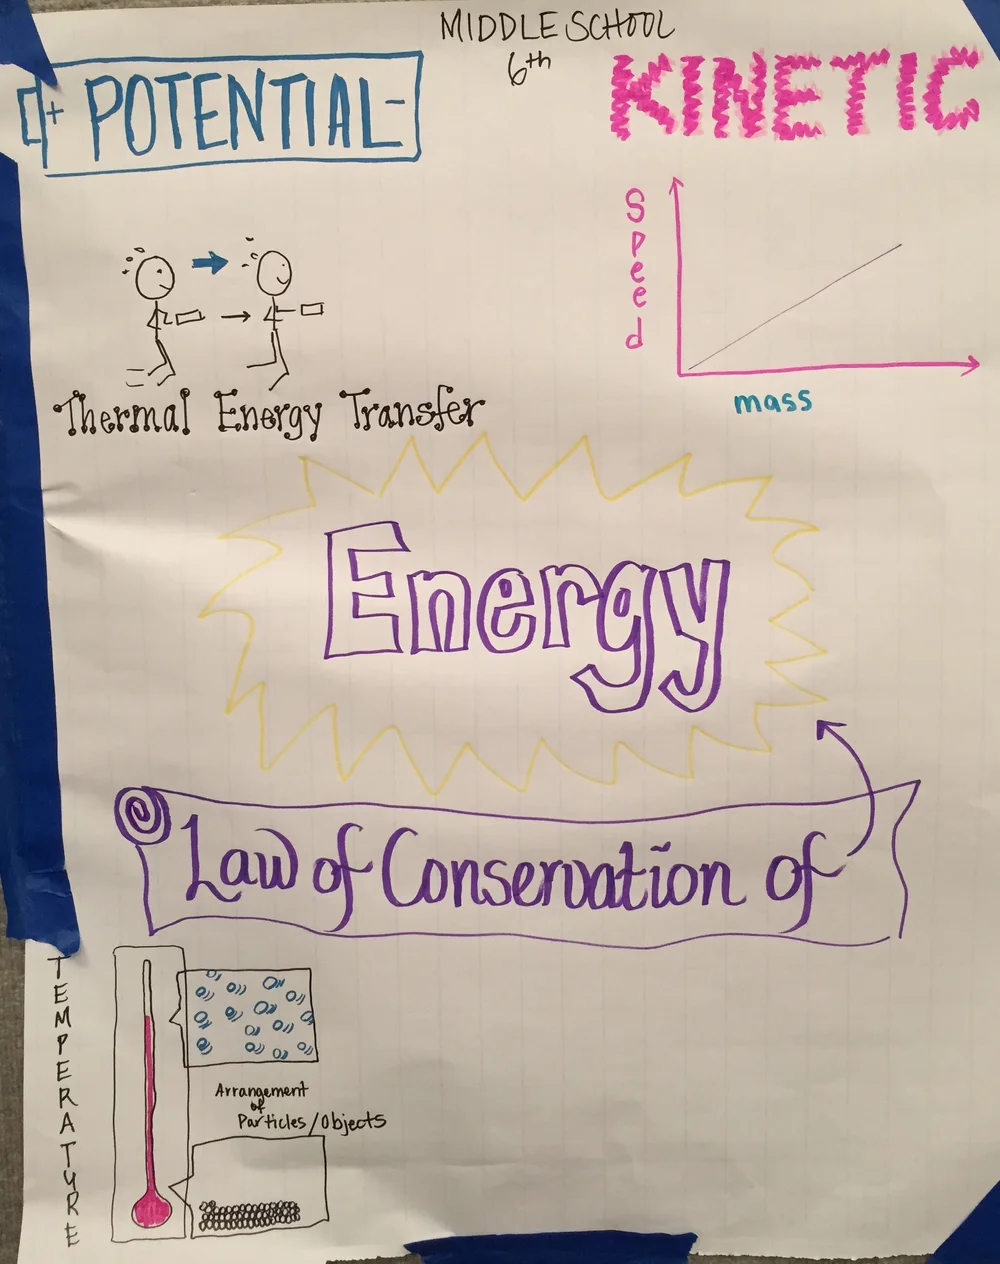 MIDDLE SCHOOL
6th
+ POTENTIAL -
KINETIC
Speed
mass
Thermal Energy Transfer
Energy
Law of Conservation of
TEMPERATURE
Arrangement
of
Particles/Objects